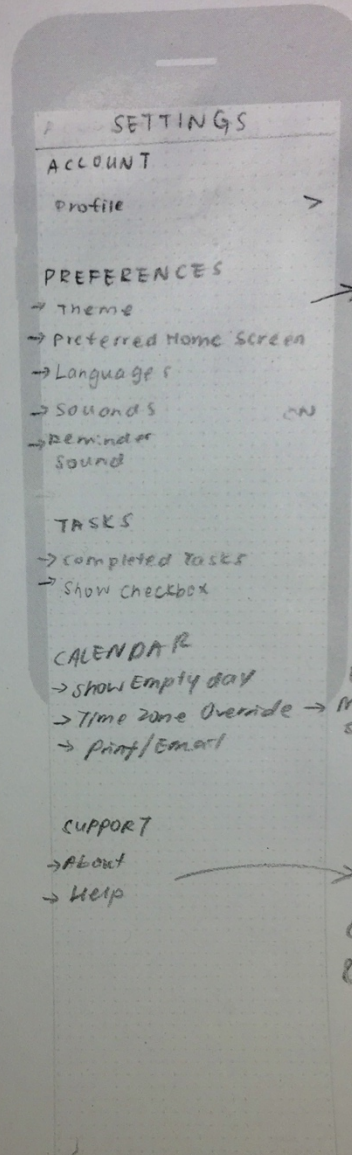 SETTINGS
ACCOUNT
Profile >
PREFERENCES
→ Theme
→ Preferred Home Screen
→ Languages
→ Souonds ON
→ Reminder
Sound
TASKS
→ Completed Tasks
→ Show Checkbox
CALENDAR
→ Show Empty day
→ Time Zone Override →
→ Print/Email
SUPPORT
→ About
→ Help